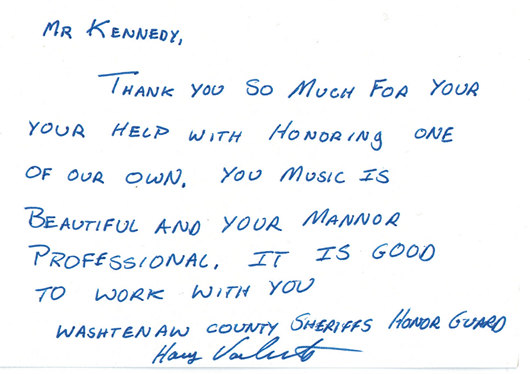 Mr Kennedy,
Thank you so much for your
your help with honoring one
of our own. You music is
beautiful and your mannor
professional. It is good
to work with you
Washtenaw County Sheriffs Honor Guard